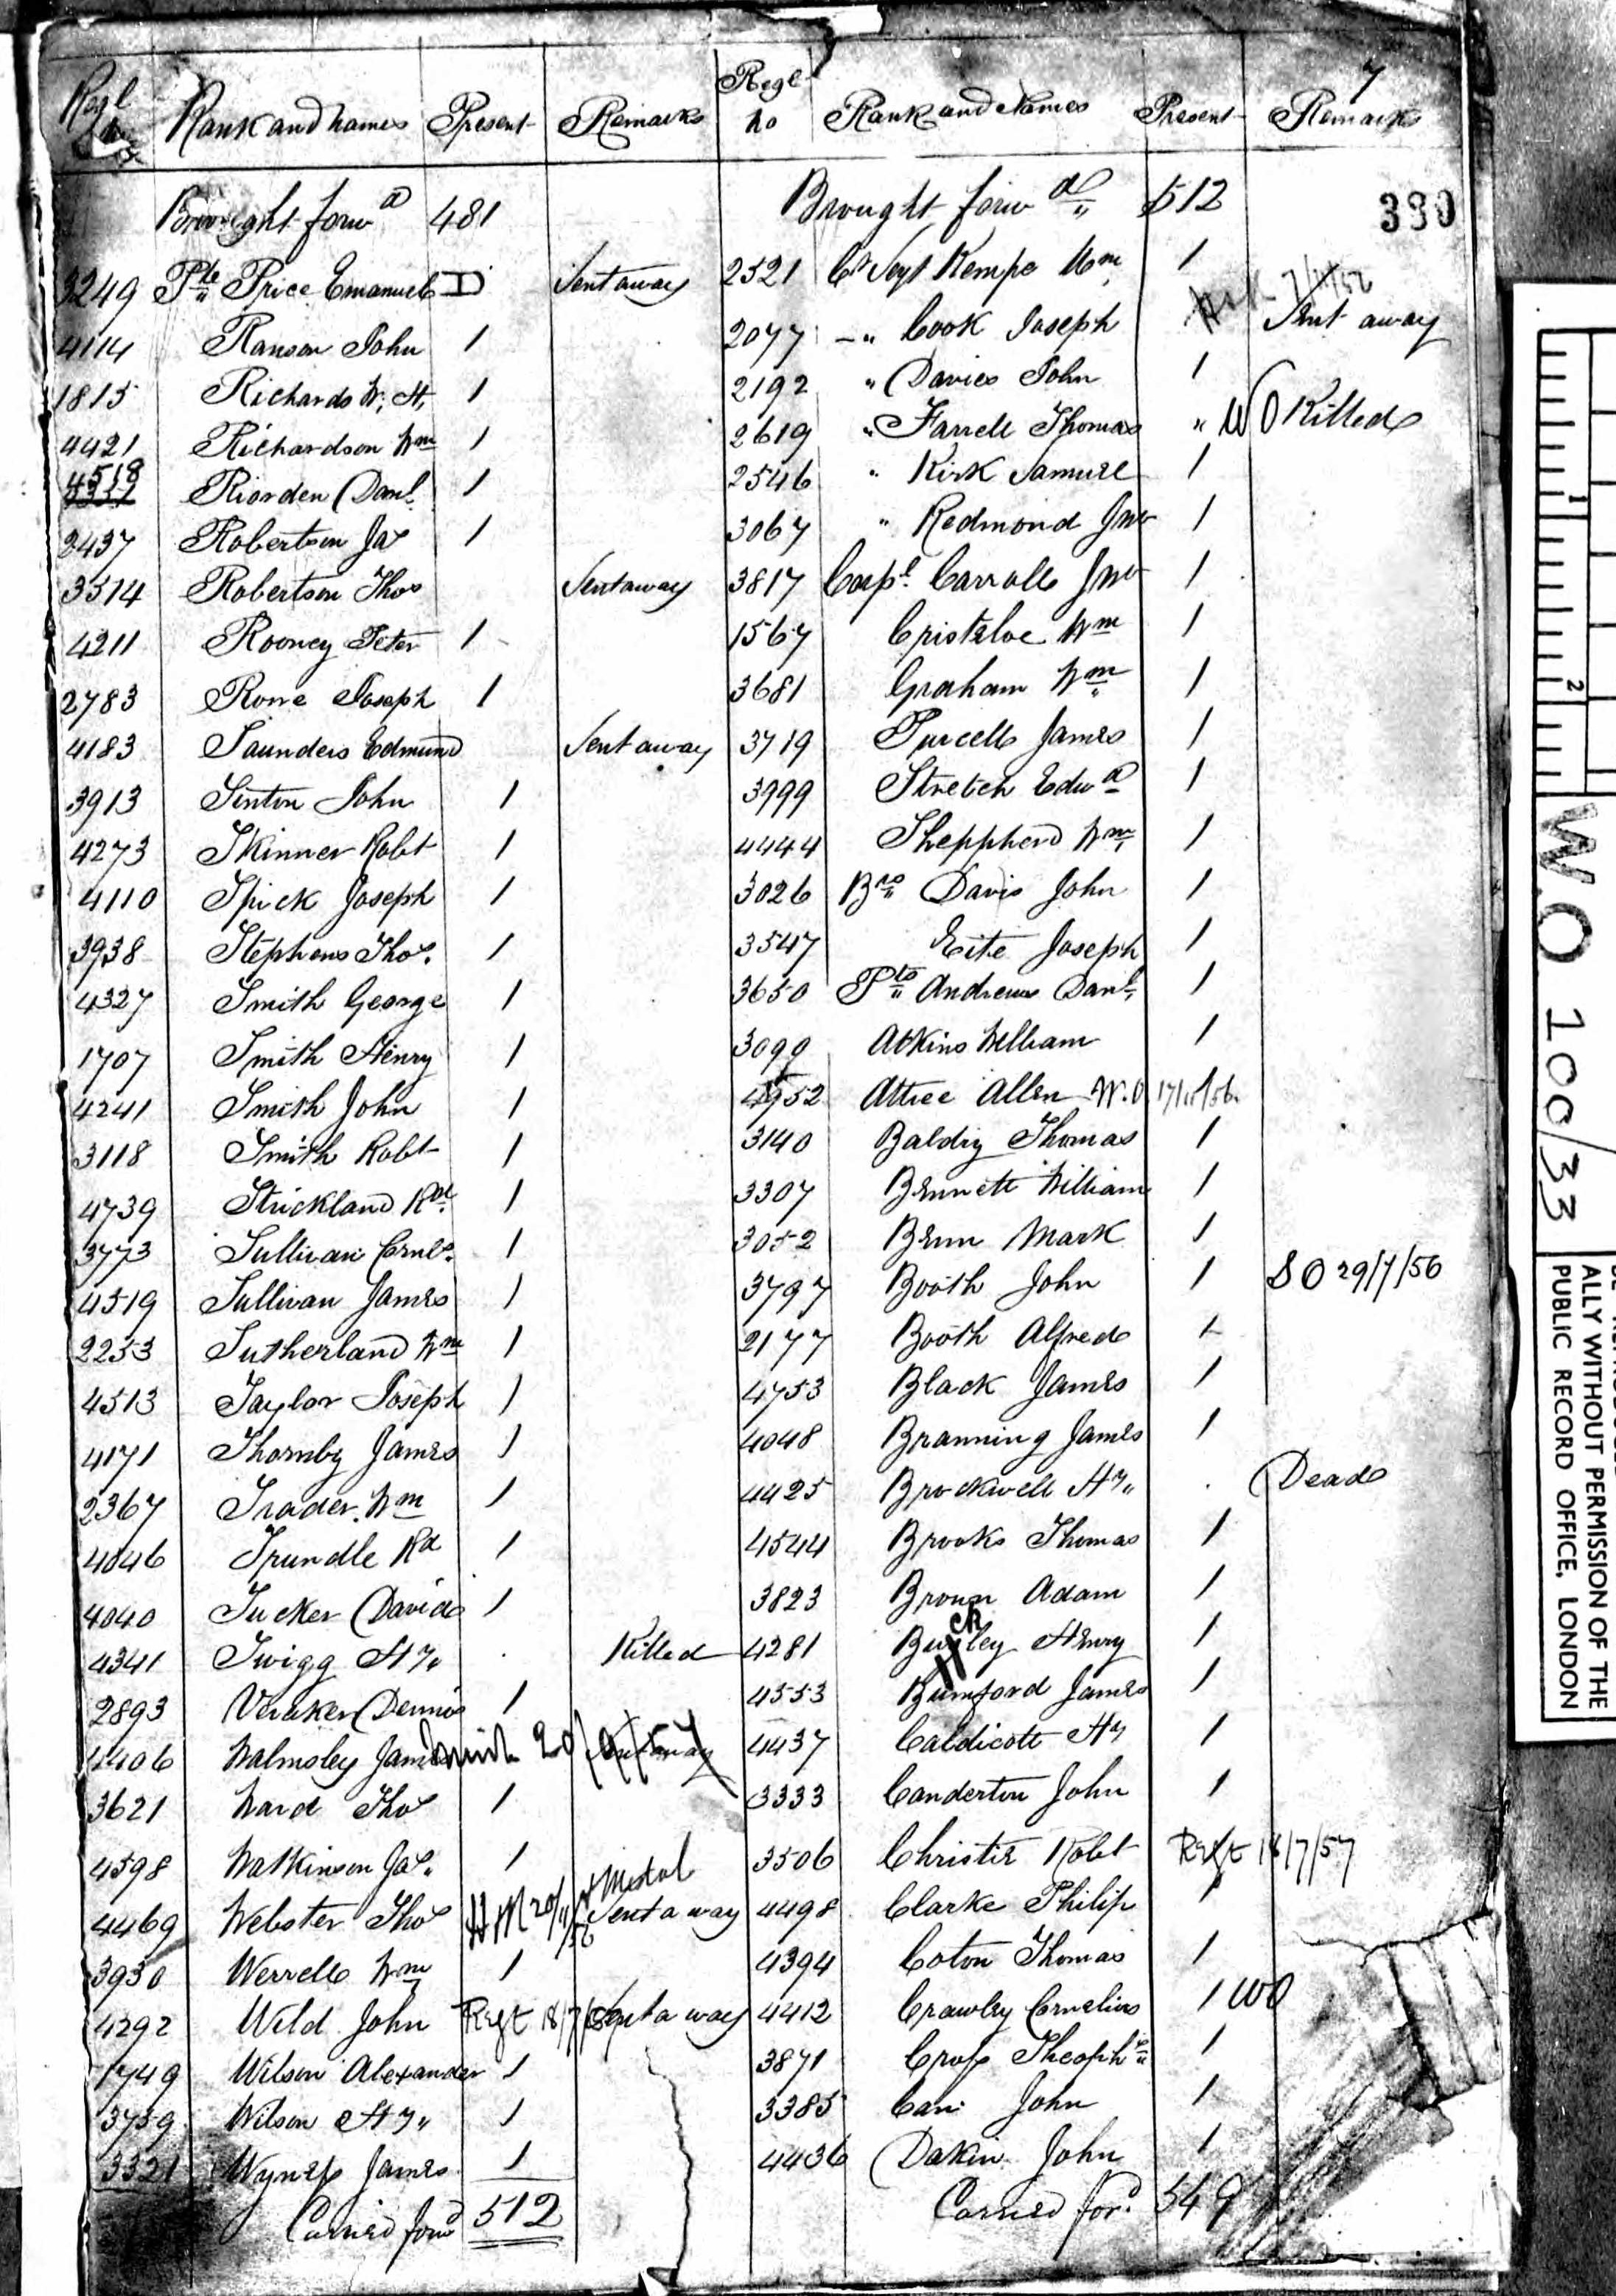 7
Regl No Rank and Names Present Remarks
Brought forwd 481
3249 Pte Price Emanuel D Sent away
4114 Ranson John 1
1815 Richards W. H. 1
4421 Richardson Wm 1
4518
Riorden Danl 1
2437 Robertson Jas 1
3514 Robertson Thos Sent away
4211 Rooney Peter 1
2783 Rowe Joseph 1
4183 Saunders Edmund Sent away
3913 Senton John 1
4273 Skinner Robt 1
4110 Spick Joseph 1
3938 Stephens Thos. 1
4327 Smith George 1
1707 Smith Henry 1
4241 Smith John 1
3118 Smith Robt 1
4739 Strickland Rd. 1
3773 Sullivan Corns. 1
4519 Sullivan James 1
2253 Sutherland Wm 1
4513 Taylor Joseph 1
4171 Thornby James 1
2367 Trader Wm 1
4046 Trundle Rd 1
4040 Tucker David 1
4341 Twigg Hy. Killed
2893 Veraker Dennis 1
4406 Walmsley James 20/9/57 Sent away
3621 Ward Thos 1
4598 Watkinson Jas. 1
Medal
4469 Webster Thos HM 20/11/56 Sent away
3930 Werrell Wm 1
4292 Wild John Regt 18/7/57 Sent away
1749 Wilson Alexander 1
3759 Wilson Hy. 1
3321 Wyness James 1
Carried forwd 512
Regl No Rank and Names Present Remarks
Brought forwd 512 330
2521 Cr Sejt Kempe Wm 1
2077 " Cook Joseph Sent away
2192 " Davies John 1
2619 " Farrell Thomas " WO Killed
2546 " Kirk Samuel 1
3067 " Redmond Jno 1
3817 Corpl. Carroll Jno 1
1567 Cristeloe Wm 1
3681 Graham Wm 1
3719 Purcell James 1
3999 Stretch Edwd 1
4444 Sheppherd Wm 1
3026 Brs Davis John 1
3547 Eite Joseph 1
3650 Pts Andrews Danl. 1
3099 Atkins William 1
4952 Attree Allen W.O 17/11/56.
3140 Baldry Thomas 1
3307 Bennett William 1
3052 Benn Mark 1
3797 Booth John 1 SO 29/7/56
2177 Booth Alfred 1
4753 Black James 1
4048 Branning James 1
4425 Brockwell Hy. Dead
4544 Brooks Thomas 1
3823 Brown Adam 1
ck
4281 Buckley Henry 1
4553 Bumford James 1
4437 Caldicott Hy 1
3333 Canderton John 1
3506 Christie Robt Regt 18/7/57
4498 Clarke Philip 1
4394 Coton Thomas 1
4412 Crawley Cornelius 1 WO
3871 Cross Theophs 1
3385 Cari John 1
4436 Dakin John 1
Carried ford. 549
1
2
W.O 100/33
ALLY WITHOUT PERMISSION OF THE
PUBLIC RECORD OFFICE, LONDON